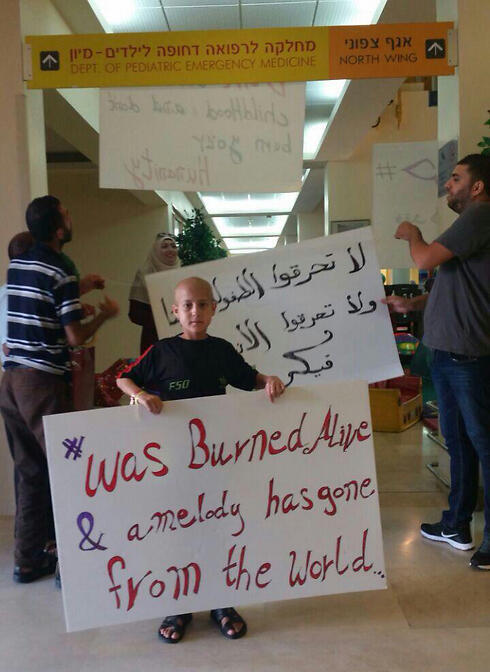 אגף צפוני
NORTH WING
מחלקה לרפואה דחופה לילדים - מיון
DEPT. OF PEDIATRIC EMERGENCY MEDICINE
childhood, and dont
burn your
Humanity
#
لا تحرقوا الطفولة
ولا تحرقوا
فيكم
#was Burned Alive
& a melody has gone
from the world...